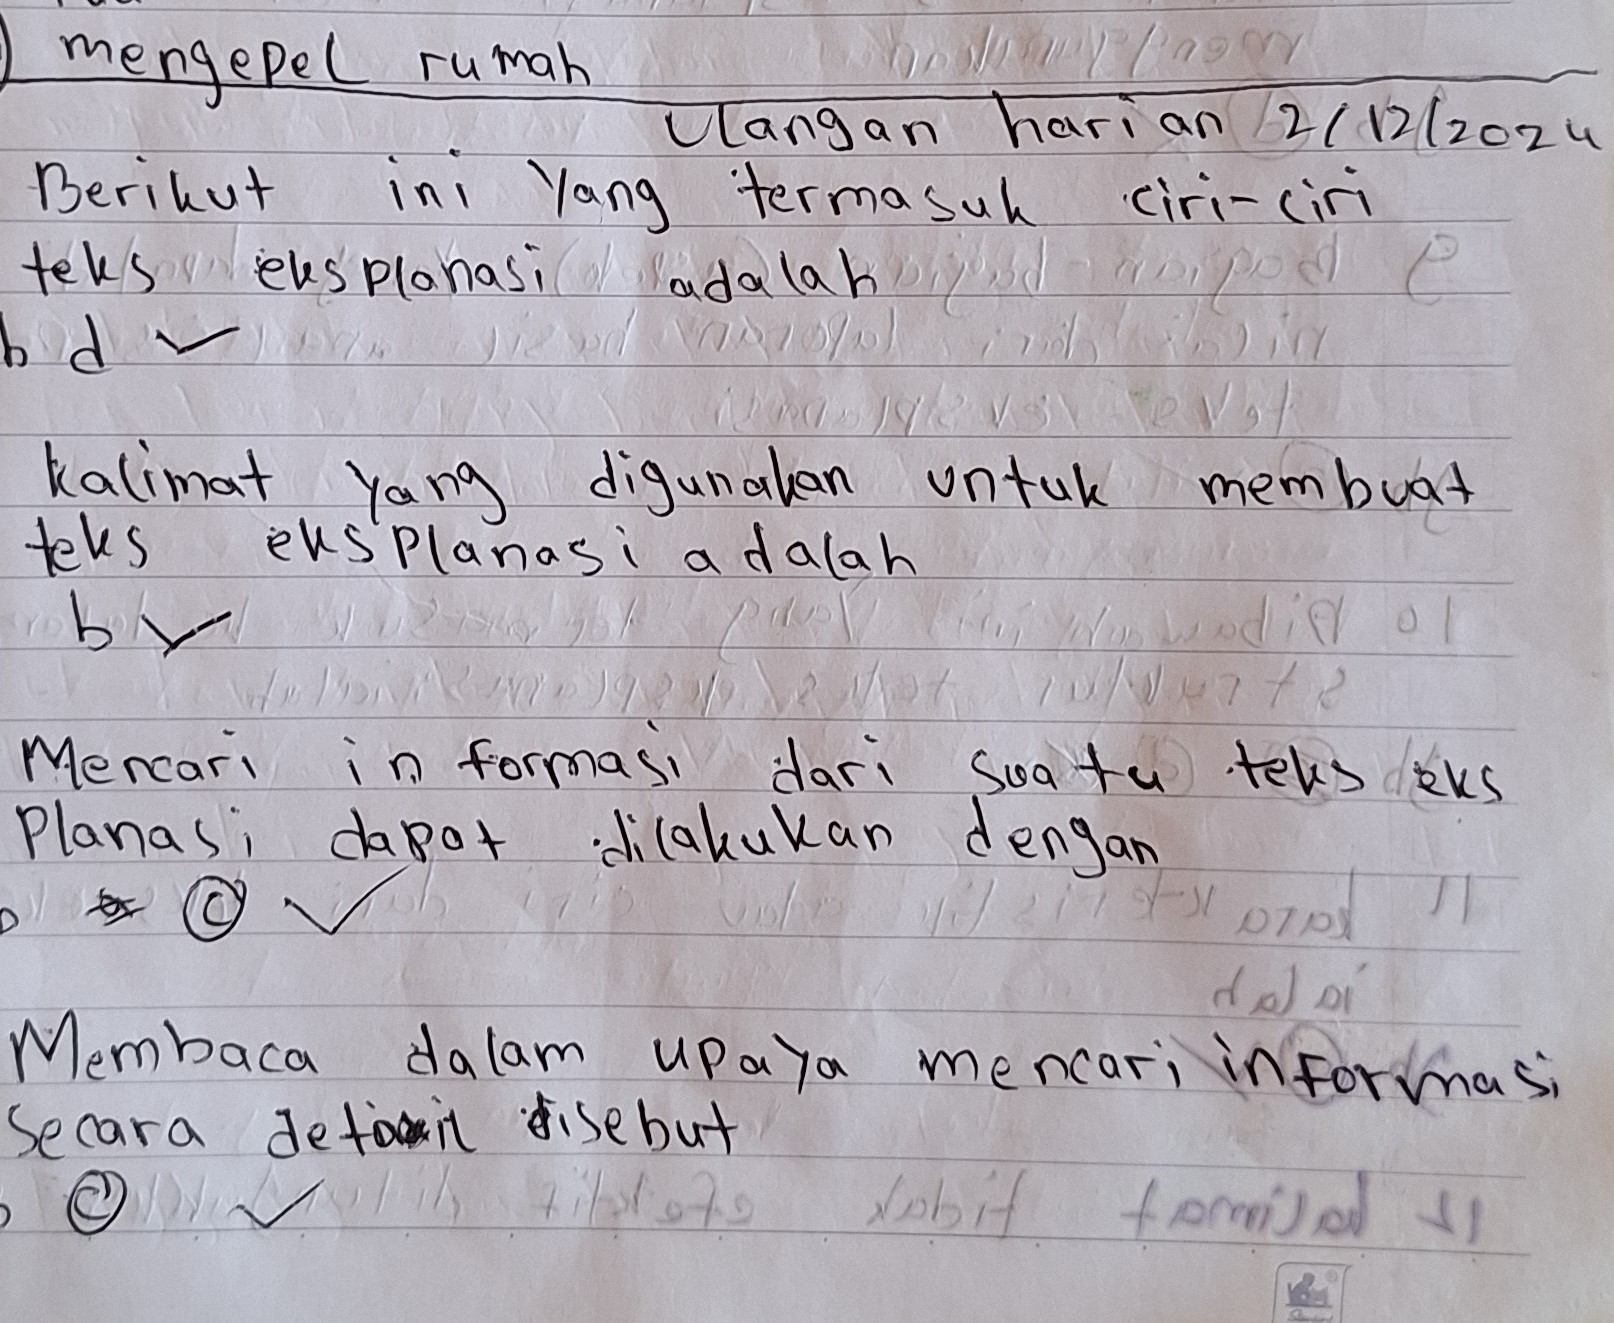 mengepel rumah
Ulangan harian 2/12/2024
Berikut ini yang termasuk ciri-ciri
teks eksplanasi adalah
b d ✓
kalimat yang digunakan untuk membuat
teks eksplanasi adalah
b ✓
Mencari informasi dari suatu teks eks
Planasi dapat dilakukan dengan
C ✓
Membaca dalam upaya mencari informasi
Secara detail disebut
C ✓